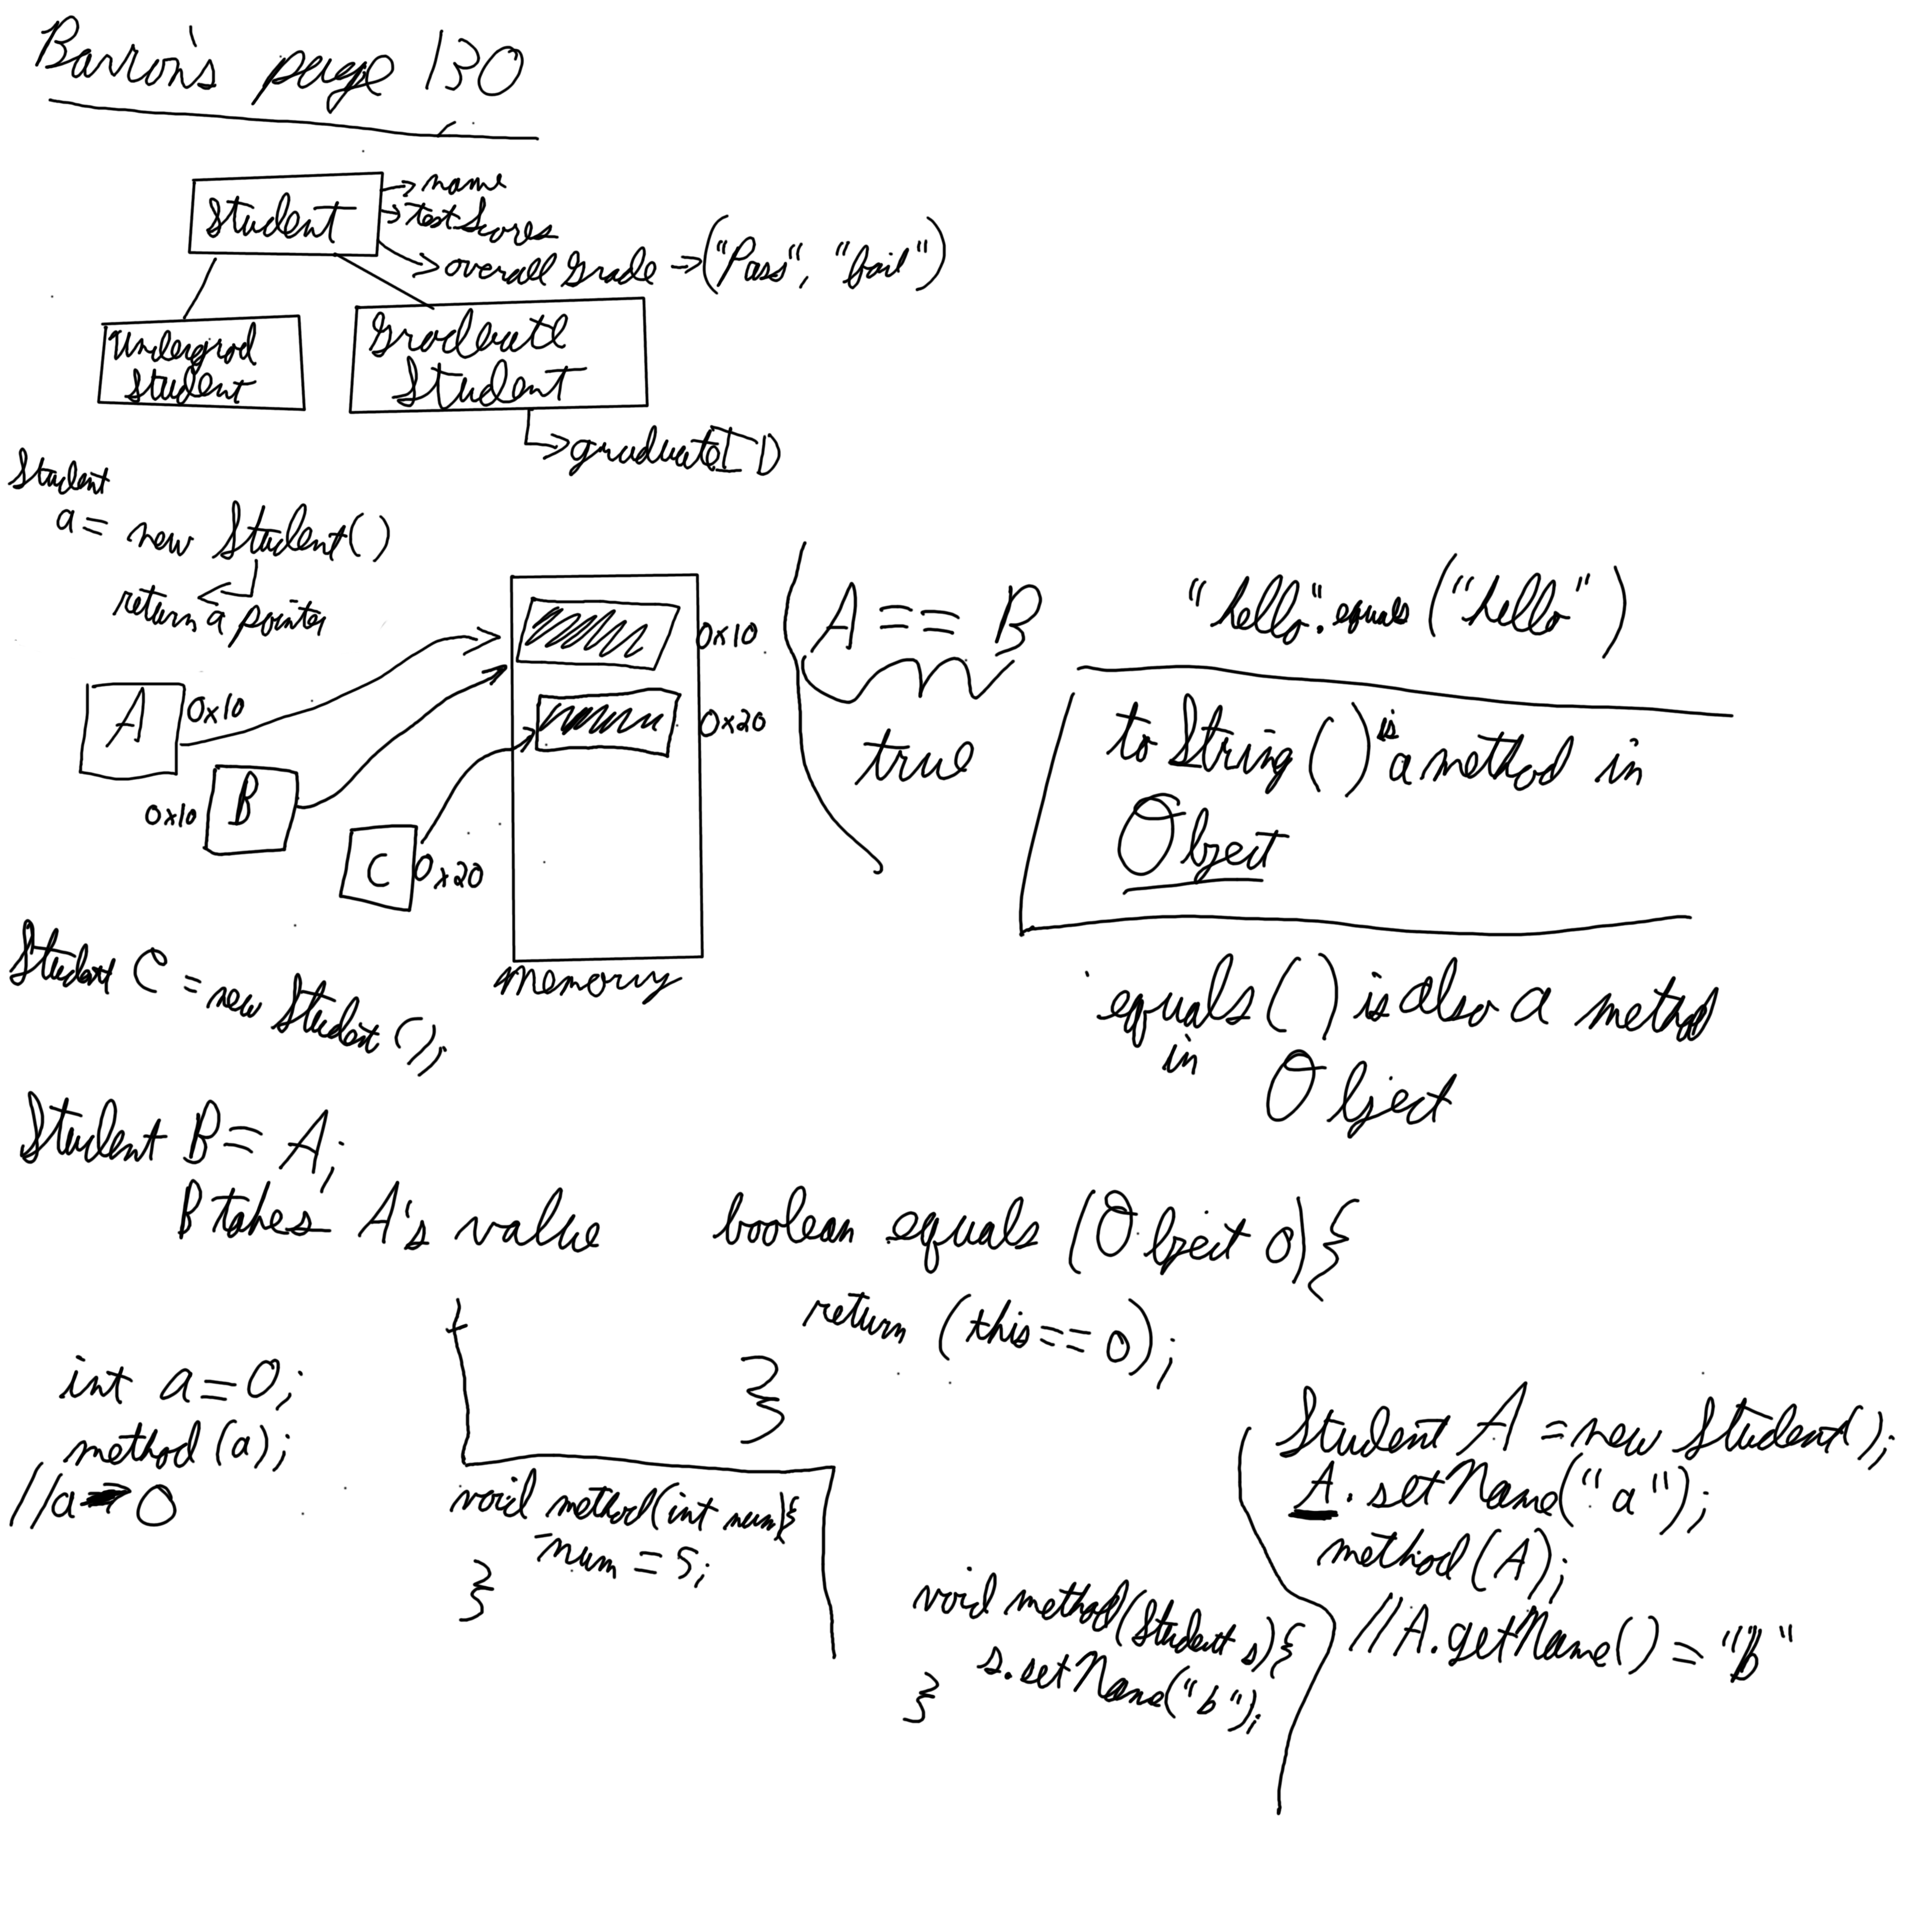 Barron's page 130
Student
→ name
→ test scores
→ overall grade → ("Pass", "fail")
Undergrad
Student
Graduate
Student
→ graduateID
Student
a = new Student()
return a pointer
A 0x10
0x10 B
C 0x20
0x10
0x20
memory
A == B
true
"hello".equals("hello")
toString() is a method in
Object
equals() is also a method
in Object
Student C = new Student();
Student B = A;
B takes A's value
boolean equals (Object o){
return (this == o);
}
int a = 0;
method (a);
//a = 0
void method(int num){
num = 5;
}
void method(Student s){
s.setName("b");
}
Student A = new Student();
A.setName("a");
method(A);
//A.getName() = "b"